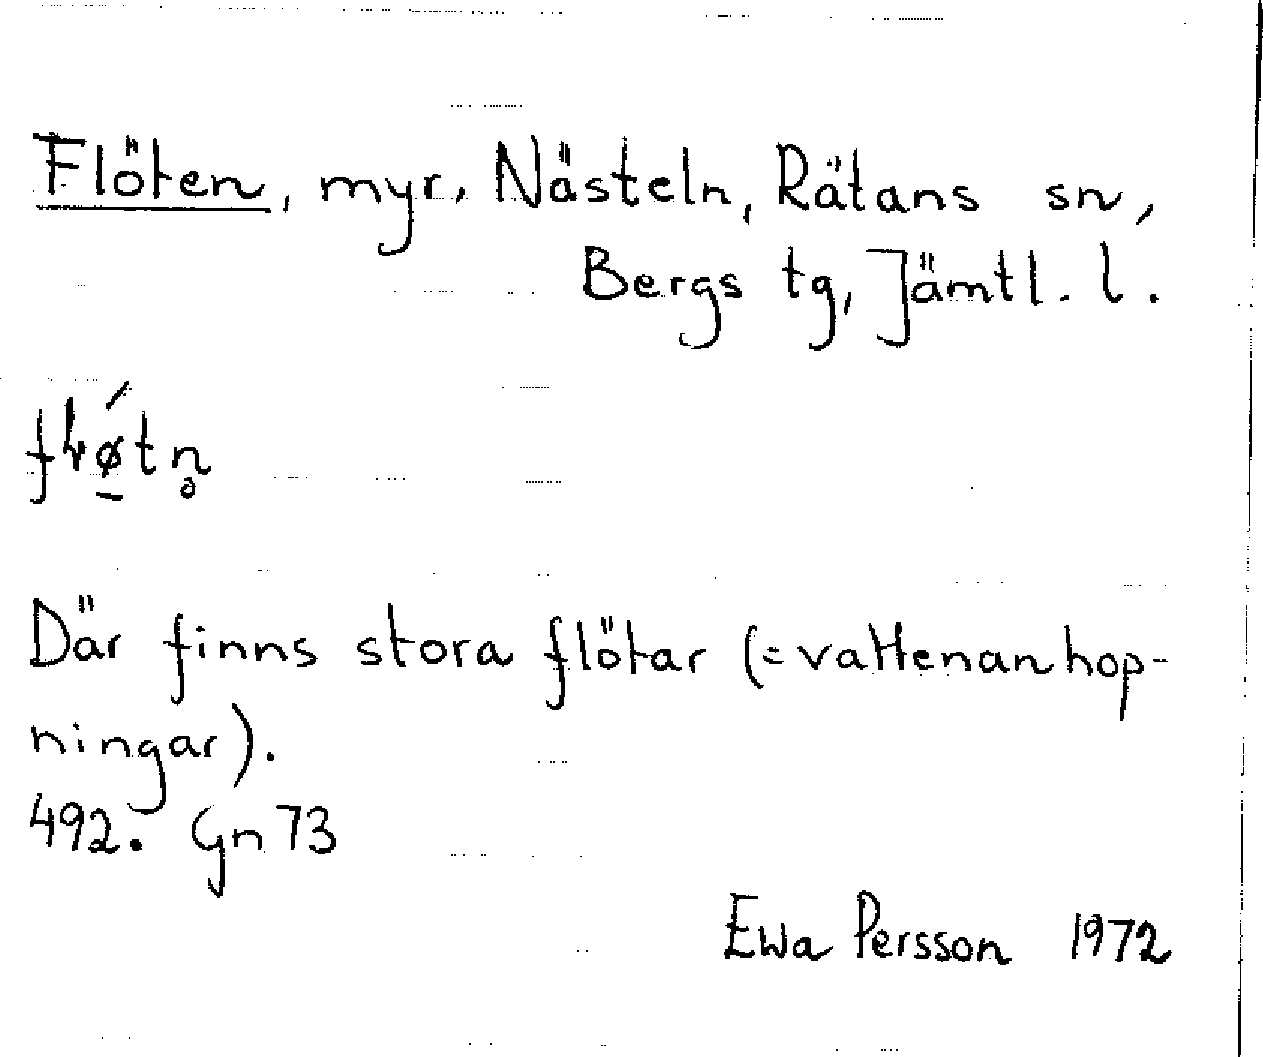 Flöten, myr, Nästeln, Rätans sn,
Bergs tg, Jämtl. l.
Där finns stora flötar (=vattenanhop-
ningar).
492. Gn 73
Ewa Persson 1972